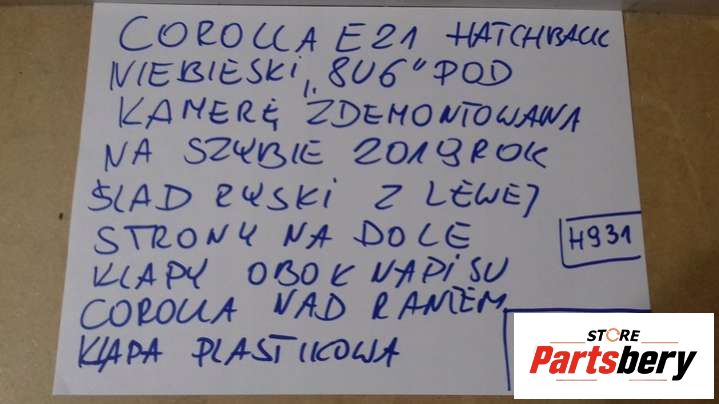 COROLLA E21 HATCHBACK
NIEBIESKI „8U6" POD
KAMERĘ ZDEMONTOWANA
NA SZYBIE 2019 ROK
ŚLAD RYSKI Z LEWEJ
STRONY NA DOLE
H931
KLAPY OBOK NAPISU
COROLLA NAD RANTEM
KLAPA PLASTIKOWA
STORE
Partsbery